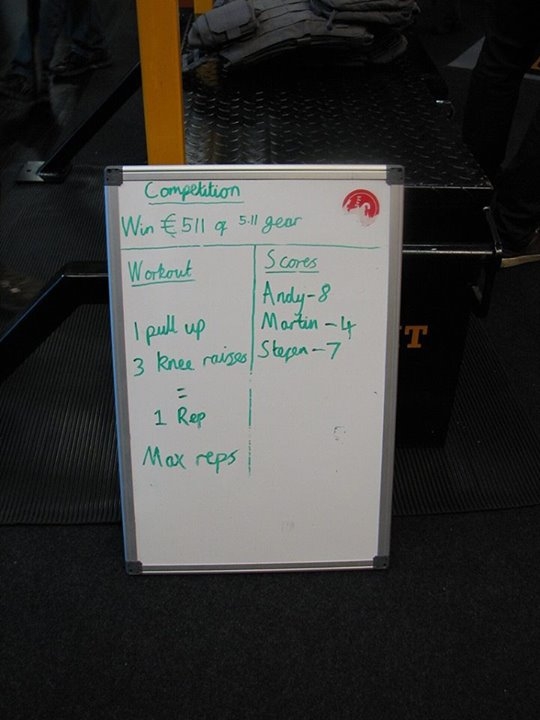 Competition
Win €511 of 5.11 gear
Workout
1 pull up
3 knee raises
=
1 Rep
Max reps
Scores
Andy-8
Martin-4
Stefen-7